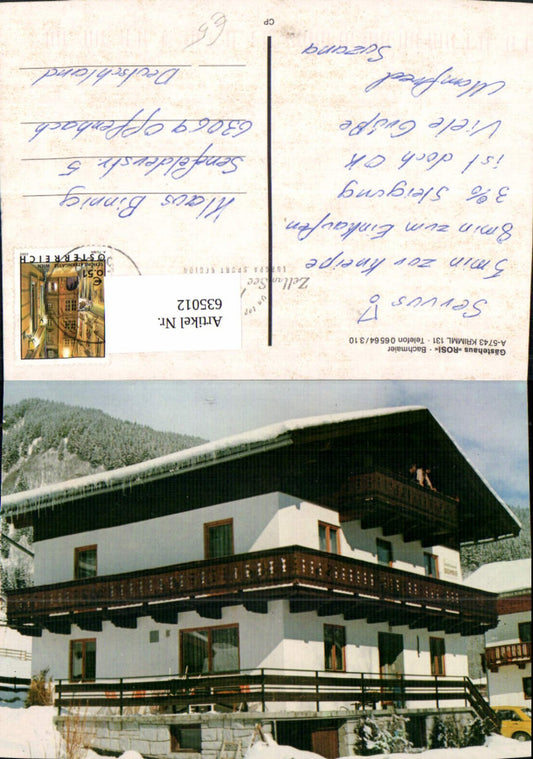 Gästehaus »ROSI« · Bachmaier
A-5743 KRIMML 131 · Telefon 0 65 64 / 3 10
Servus
5 min zur Kneipe
8 min zum Einkaufen.
3% Steigung
ist doch OK
Viele Grüße
Manfred
Suzana
Zell am See
EUROPA SPORT REGION
€ 0,51
ÖSTERREICH
Klaus Binnig
Senefelderstr 5
63069 Offenbach
Deutschland
CP
Artikel Nr.
635012